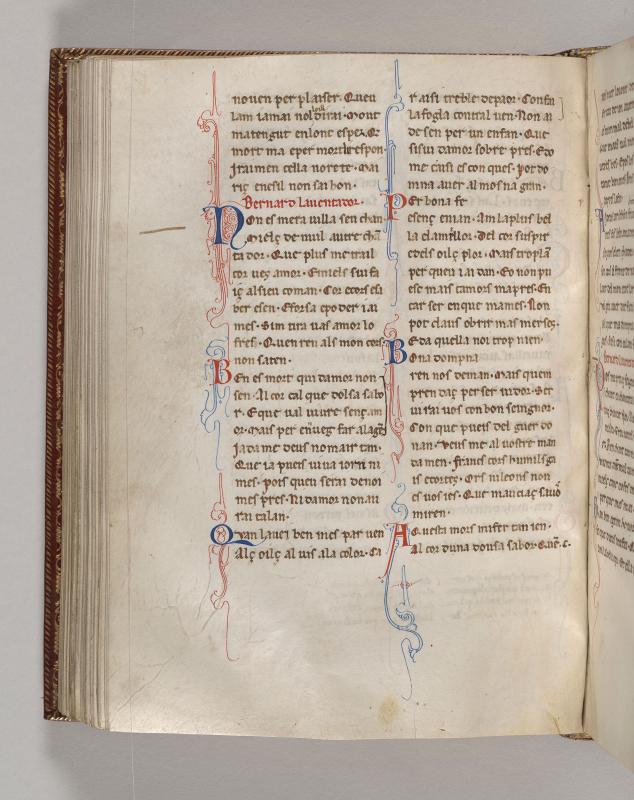 nouen per plaiser. Queu
lam iamai nol dirai. Mout
matengut enlonc esper. Er
mort ma eper mort respon
Irai men cella no rete. Mai
riç en esil non sai hon.
Bernard lauentador.
Non es mera uilla seu chan
ta dor. Que plus me trail
cor ues amor. E miels sui fa
iç al sieu coman. Cor e cors e sa
ber e sen. E forsa e poder i ai
mes. Sim tira uas amor lo
fres. Quen ren als mon cors
non saten.
Ben es mort qui damor non
sen. Al cor cal que dolsa sabo
r. E que ual uiure senç am
or. Mais per enueg far alagẽs
Ja da me deus nom air tan.
Que ia pueis uiua iorn ni
mes. pois queu serai denoi
mes pres. Ni damor non au
rai talan.
Quan la uei ben mes par uen
Alç oilç al uis a la color. Ca
r aisi treble de paor. Con fa
la fogla contral uen. Non ai
de sen per un enfan. Que
si sui damor sobre pres. E do
me eaisi es con ques. Pot do
mna auer almosna gran.
Per bona fe
e senç eman. Am la plus bel
la el amillor. Del cor suspir
e dels oilç plor. Mais trop lam
per queu i ai dan. Eo non pu
esc mais camors ma pres. En
car ser en que mames. Non
pot claus obrir mas merses.
E da quella noi trop nien.
Bona dompna
ren nos deman. Mais quem
pren daç per seruidor. Ser
uirai uos con bon seingnor.
Con que pueis del guer do
nan. Veus me al uostre man
damen. francs cors humils ga
is e cortes. Ors ni leons non
es uos ies. Que mauciaç sauo
miren.
Aquesta mors mi fer tan ien.
Al cor duna dousa sabor. Quẽ. c.